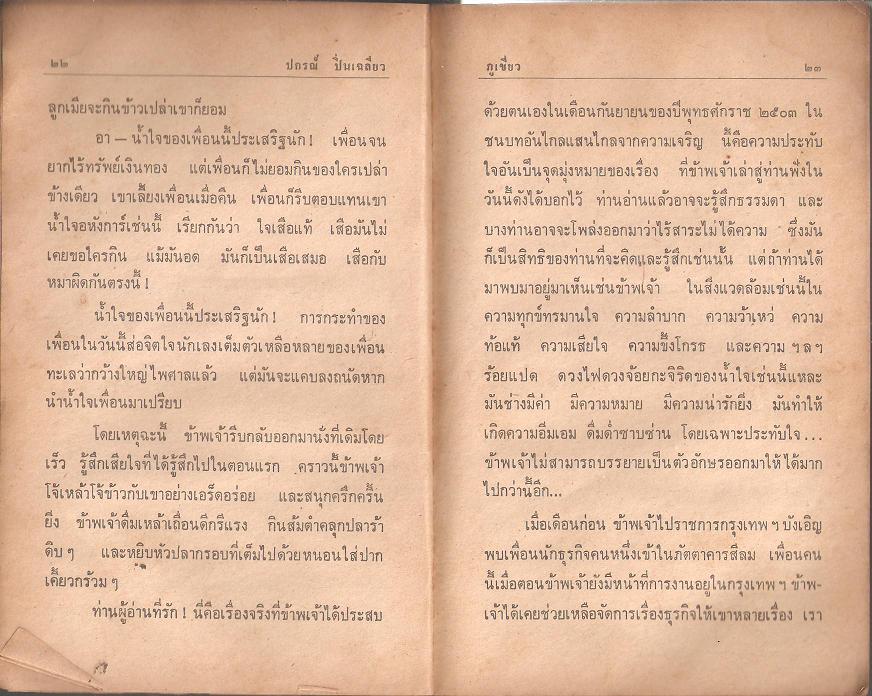 ๒๒ ปกรณ์ ปิ่นเฉลียว
ลูกเมียจะกินข้าวเปล่าเขาก็ยอม
อา — น้ำใจของเพื่อนนี้ประเสริฐนัก! เพื่อนจน
ยากไร้ทรัพย์เงินทอง แต่เพื่อนก็ไม่ยอมกินของใครเปล่า
ข้างเดียว เขาเลี้ยงเพื่อนเมื่อคืน เพื่อนก็รีบตอบแทนเขา
น้ำใจอหังการ์เช่นนี้ เรียกกันว่า ใจเสือแท้ เสือมันไม่
เคยขอใครกิน แม้มันอด มันก็เป็นเสือเสมอ เสือกับ
หมาผิดกันตรงนี้!
น้ำใจของเพื่อนนี้ประเสริฐนัก! การกระทำของ
เพื่อนในวันนี้ส่อจิตใจนักเลงเต็มตัวเหลือหลายของเพื่อน
ทะเลว่ากว้างใหญ่ไพศาลแล้ว แต่มันจะแคบลงถนัดหาก
นำน้ำใจเพื่อนมาเปรียบ
โดยเหตุฉะนี้ ข้าพเจ้ารีบกลับออกมานั่งที่เดิมโดย
เร็ว รู้สึกเสียใจที่ได้รู้สึกไปในตอนแรก คราวนี้ข้าพเจ้า
โจ้เหล้าโจ้ข้าวกับเขาอย่างเอร็ดอร่อย และสนุกครึกครื้น
ยิ่ง ข้าพเจ้าดื่มเหล้าเถื่อนดีกรีแรง กินส้มตำคลุกปลาร้า
ดิบๆ และหยิบหัวปลากรอบที่เต็มไปด้วยหนอนใส่ปาก
เคี้ยวกร้วมๆ
ท่านผู้อ่านที่รัก! นี่คือเรื่องจริงที่ข้าพเจ้าได้ประสบ
ภูเขียว ๒๓
ด้วยตนเองในเดือนกันยายนของปีพุทธศักราช ๒๕๐๓ ใน
ชนบทอันไกลแสนไกลจากความเจริญ นี้คือความประทับ
ใจอันเป็นจุดมุ่งหมายของเรื่อง ที่ข้าพเจ้าเล่าสู่ท่านฟังใน
วันนี้ดังได้บอกไว้ ท่านอ่านแล้วอาจจะรู้สึกธรรมดา และ
บางท่านอาจจะโพล่งออกมาว่าไร้สาระไม่ได้ความ ซึ่งมัน
ก็เป็นสิทธิของท่านที่จะคิดและรู้สึกเช่นนั้น แต่ถ้าท่านได้
มาพบมาอยู่มาเห็นเช่นข้าพเจ้า ในสิ่งแวดล้อมเช่นนี้ใน
ความทุกข์ทรมานใจ ความลำบาก ความว้าเหว่ ความ
ท้อแท้ ความเสียใจ ความขึ้งโกรธ และความ ฯลฯ
ร้อยแปด ดวงไฟดวงจ้อยกะจิริดของน้ำใจเช่นนี้แหละ
มันช่างมีค่า มีความหมาย มีความน่ารักยิ่ง มันทำให้
เกิดความอิ่มเอม ดื่มด่ำซาบซ่าน โดยเฉพาะประทับใจ...
ข้าพเจ้าไม่สามารถบรรยายเป็นตัวอักษรออกมาให้ได้มาก
ไปกว่านี้อีก...
เมื่อเดือนก่อน ข้าพเจ้าไปราชการกรุงเทพฯ บังเอิญ
พบเพื่อนนักธุรกิจคนหนึ่งเข้าในภัตตาคารสีลม เพื่อนคน
นี้เมื่อตอนข้าพเจ้ายังมีหน้าที่การงานอยู่ในกรุงเทพฯ ข้าพ-
เจ้าได้เคยช่วยเหลือจัดการเรื่องธุรกิจให้เขาหลายเรื่อง เรา